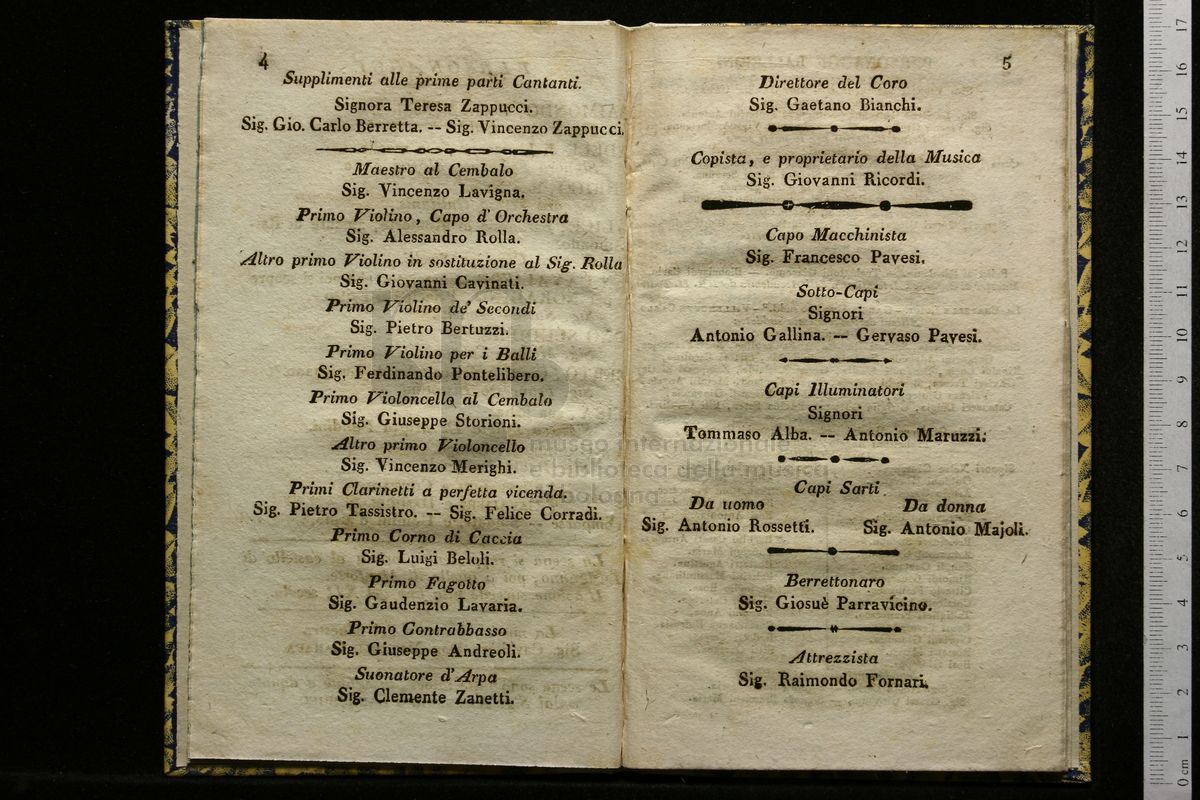 4
Supplimenti alle prime parti Cantanti.
Signora Teresa Zappucci.
Sig. Gio. Carlo Berretta. -- Sig. Vincenzo Zappucci.
Maestro al Cembalo
Sig. Vincenzo Lavigna.
Primo Violino, Capo d' Orchestra
Sig. Alessandro Rolla.
Altro primo Violino in sostituzione al Sig. Rolla
Sig. Giovanni Cavinati.
Primo Violino de' Secondi
Sig. Pietro Bertuzzi.
Primo Violino per i Balli
Sig. Ferdinando Pontelibero.
Primo Violoncello al Cembalo
Sig. Giuseppe Storioni.
Altro primo Violoncello
Sig. Vincenzo Merighi.
Primi Clarinetti a perfetta vicenda.
Sig. Pietro Tassistro. -- Sig. Felice Corradi.
Primo Corno di Caccia
Sig. Luigi Beloli.
Primo Fagotto
Sig. Gaudenzio Lavaria.
Primo Contrabbasso
Sig. Giuseppe Andreoli.
Suonatore d' Arpa
Sig. Clemente Zanetti.
5
Direttore del Coro
Sig. Gaetano Bianchi.
Copista, e proprietario della Musica
Sig. Giovanni Ricordi.
Capo Macchinista
Sig. Francesco Pavesi.
Sotto-Capi
Signori
Antonio Gallina. -- Gervaso Pavesi.
Capi Illuminatori
Signori
Tommaso Alba. -- Antonio Maruzzi.
Capi Sarti
Da uomo Da donna
Sig. Antonio Rossetti. Sig. Antonio Majoli.
Berrettonaro
Sig. Giosuè Parravicino.
Attrezzista
Sig. Raimondo Fornari.
museo internazionale
e biblioteca della musica
bologna
17
16
15
14
13
12
11
10
9
8
7
6
5
4
3
2
1
0 cm